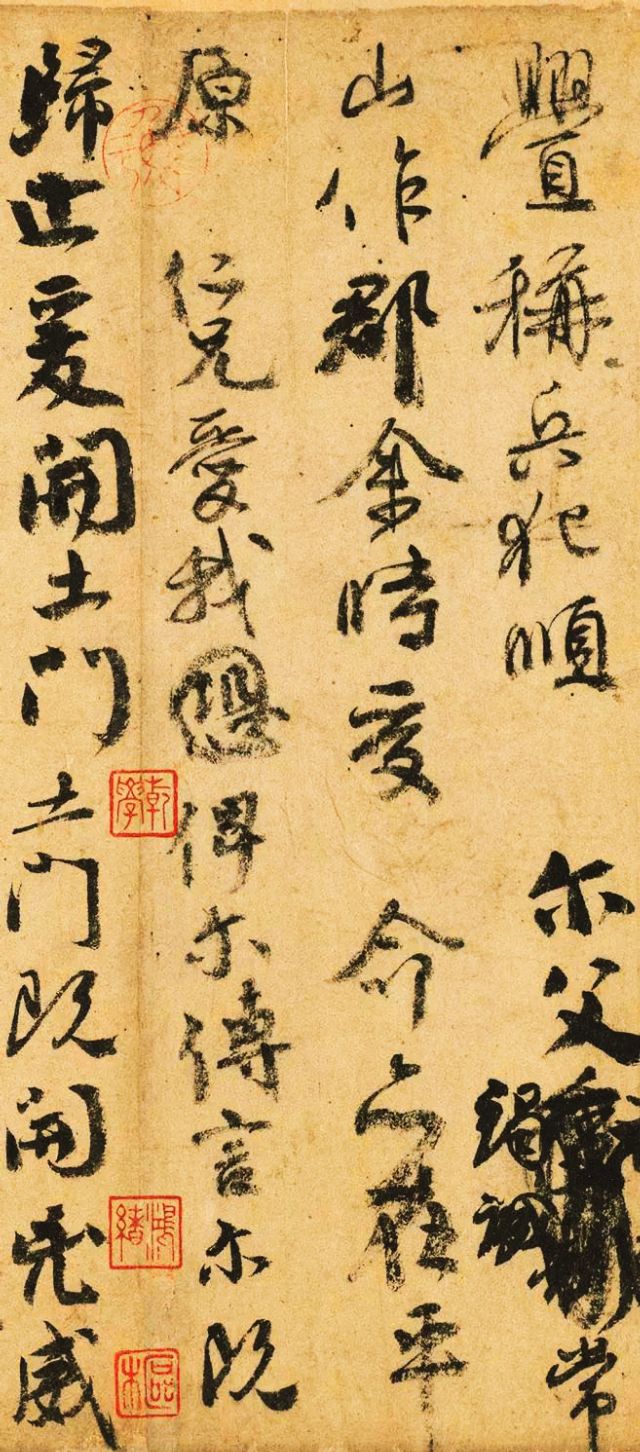 舋稱兵犯順 尔父竭誠常
山作郡余時受 命亦在平
原 仁兄愛我俾尔傳言尔既
歸止爰開土門土門既開兇威
乾學
鴻緒
樞